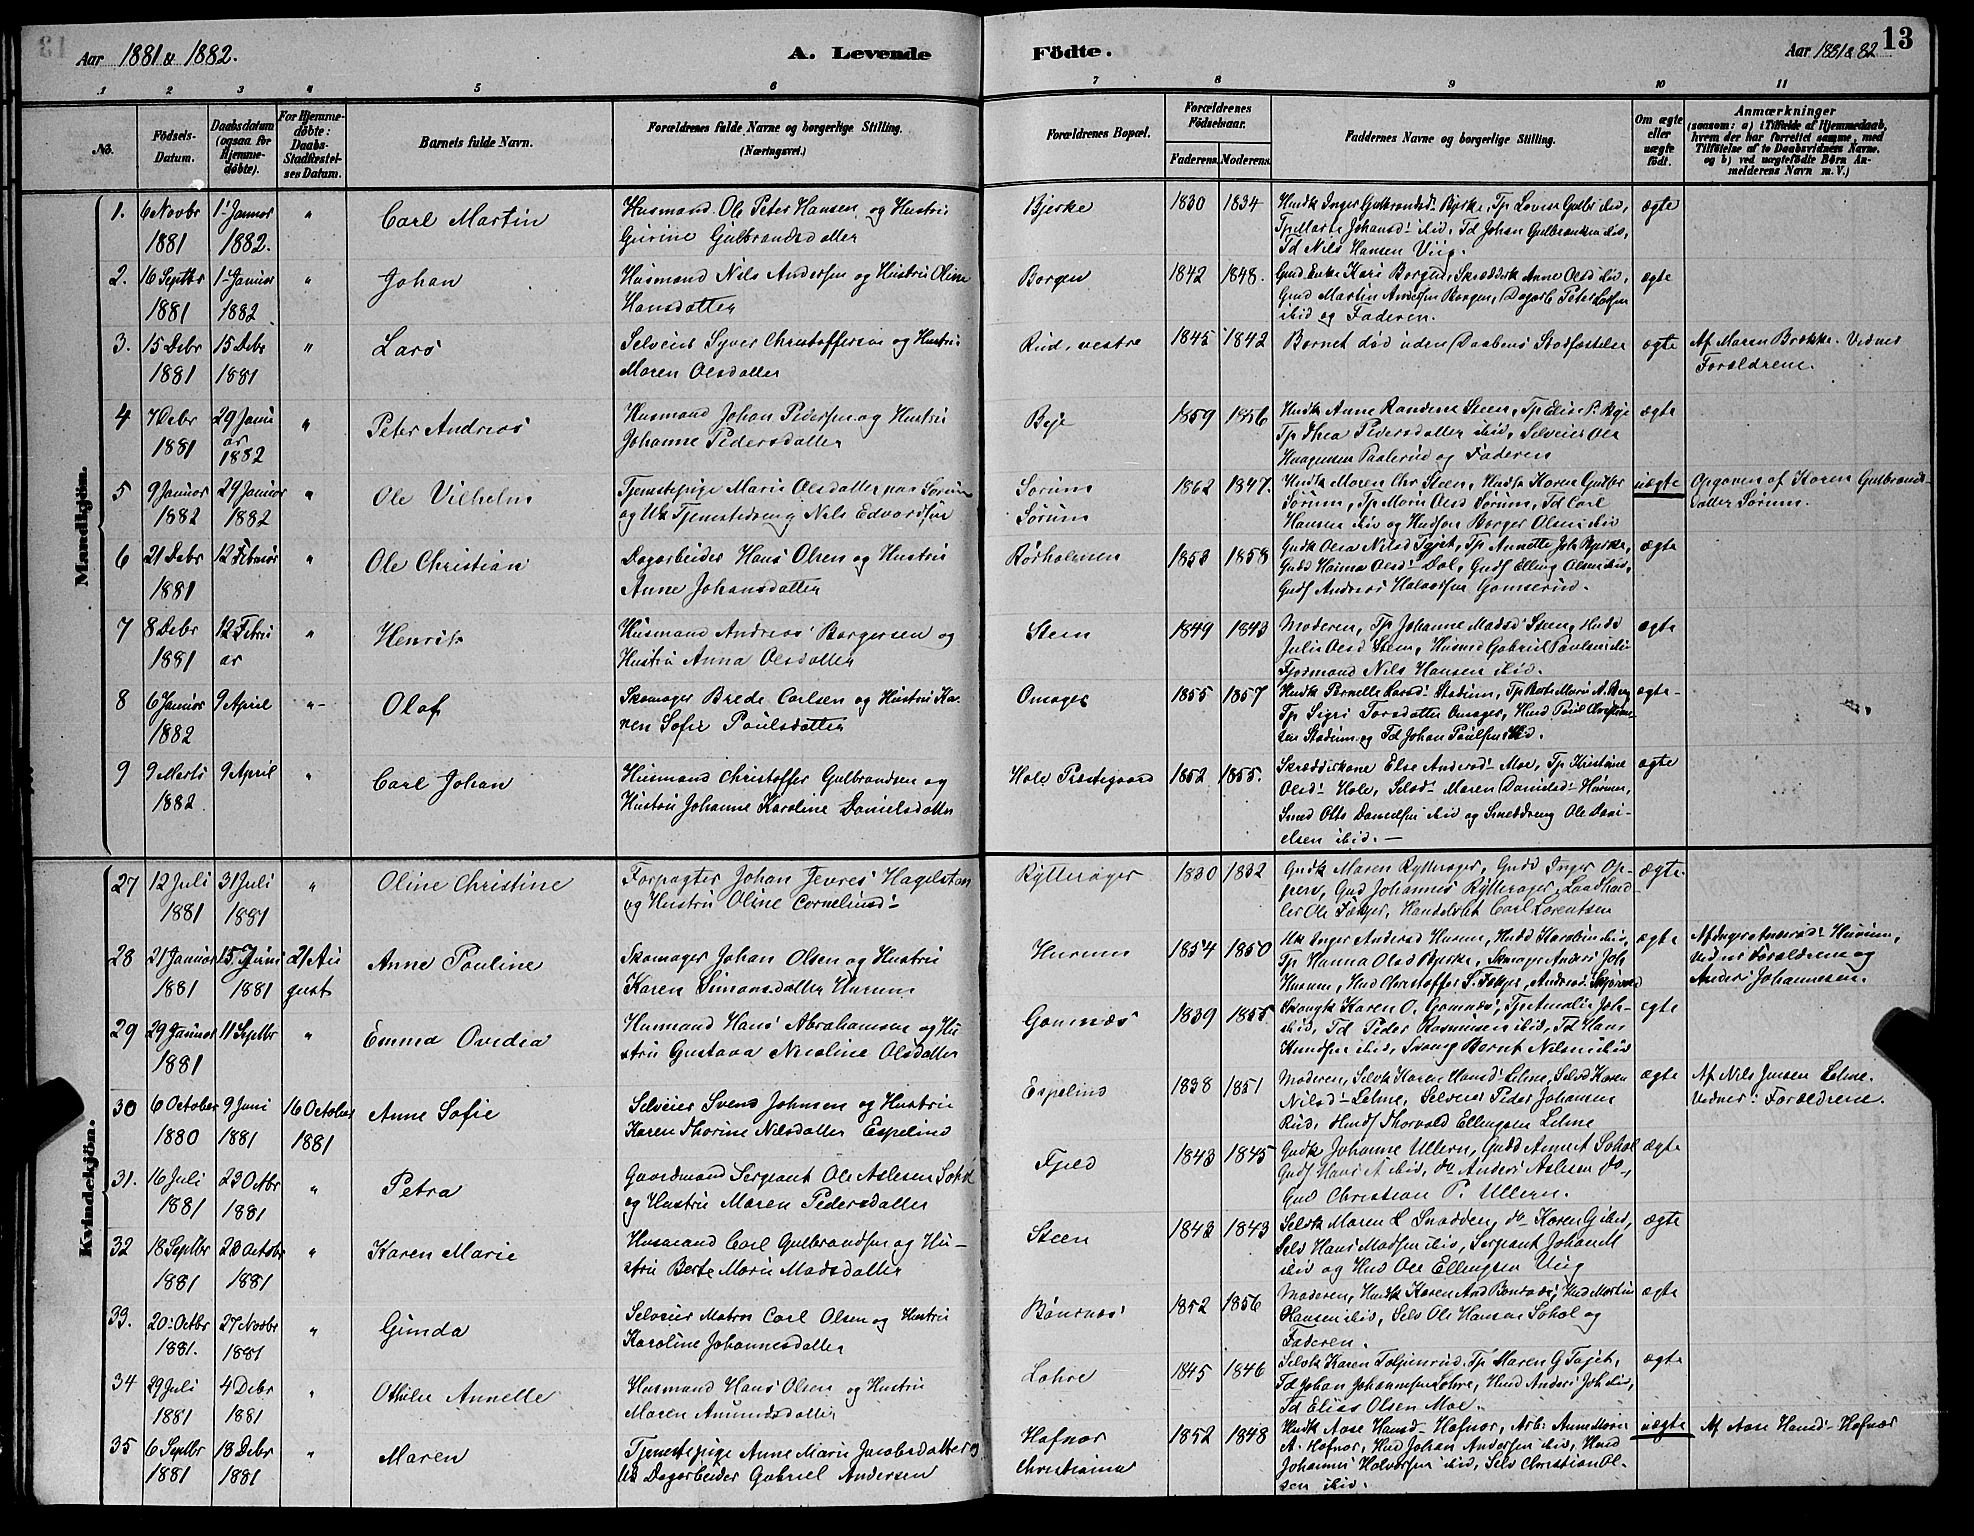 Aar 1881 & 1882.
A. Levende
Födte.
Aar 1881 & 82
13
1 2 3 4 5 6 7 8 9 10 11
No.
Födsels-
Datum.
Daabsdatum
(ogsaa for
Hjemme-
döbte).
For Hjemme-
döbte:
Daabs-
Stadfæstel-
ses Datum.
Barnets fulde Navn.
Forældrenes fulde Navne og borgerlige Stilling.
(Næringsvei.)
Forældrenes Bopæl.
Forældrenes
Födselsaar.
Faderens. Moderens.
Faddernes Navne og borgerlige Stilling.
Om ægte
eller
uægte
födt.
Anmærkninger
(saasom: a) i Tilfælde af Hjemmedaab,
hvem der har forrettet samme, med
Tilföielse af to Daabsvidners Navne,
og b) ved uægtefödte Börn An-
melderens Navn m. V.)
Mandkjön.
1. 6 Novbr 1881
1 Januar 1882.
"
Carl Martin
Husmand Ole Peter Hansen og Hustru
Gurine Gulbrandsdatter
Bjerke
1830 1834
Husk Inger Gulbrandsd Bjerke, Tp Lovise Gulbr ibid,
Tp Marte Johansd ibid, Td Johan Gulbrandsen ibid,
Td Nils Hansen Viig.
ægte
2. 16 Septbr 1881
1 Januar 1882
"
Johan
Husmand Nils Andersen og Hustru Oline
Hansdatter
Borgen
1842 1848.
Gmd Enke Kari Borgen, Skrædderk Anne Olsd ibid,
Gmd Martin Andersen Borgen, Dagarb Peter Larsen
ibid og Faderen.
ægte
3. 15 Debr 1881
15 Debr 1881
"
Lars
Selveier Syver Christoffersen og Hustru
Maren Olsdatter
Rud, vestre
1845 1842
Barnet död uden Daabens Stadfæstelse
ægte
Af Maren Brække. Vidner
Forældrene.
4 7 Debr 1881
29 Janu
ar
1882
"
Peter Andreas
Husmand Johan Pedersen og Hustru
Johanne Pedersdatter
Beje
1859 1856
Husk Anne Randine Steen, Tp Elise P. Beje
Tp Thea Pedersdatter ibid, Selveier Ole
Haagensen Paalerud og Faderen
ægte
5 9 Januar 1882
29 Januar 1882
"
Ole Vilhelm
Tjenestepige Marie Olsdatter paa Sörum
og Uk Tjenestedreng Nils Edvardsen
Sörum
Sörum
1862 1847.
Husk Maren Chr Steen, Husk Karen Gulbr
Sörum, Tp Marie Olsd Sörum, Td Carl
Hansen ibid og Husfm Borger Olsen ibid
uægte
Opgaven af Karen Gulbrands-
datter Sörum.
6 21 Debr 1881
12 Februar
"
Ole Christian
Dagarbeider Hans Olsen og Hustru
Anne Johansdatter
Rörholmen
1853 1858
Gmdk Olea Nilsd Tajet, Tp Annette Joh Bjerke,
Gmdd Hanna Olsd Dal, Gmds Elling Olsen ibid,
Gmds Andreas Halvorsen Gomserud.
ægte
7 8 Debr 1881
12 Febru
ar
"
Henrik
Husmand Andreas Borgersen og
Hustru Anna Olsdatter
Steen
1849 1843
Moderen, Tp Johanne Madsd Steen, Husd
Julie Olsd Steen, Husmd Gabriel Paulsen ibid
Fjösmand Nils Hansen ibid.
ægte
8 6 Januar 1882
9 April
"
Olaf
Skomager Brede Carlsen og Hustru Ka-
ren Sofie Paulsdatter
Onsager
1855 1857
Husk Pernelle Larsd Stadum, Tp Berte Marie A. Berg
Tp Sigri Torsdatter Onsager, Husd Paul Christian-
sen Stadum og Td Johan Paulsen ibid.
ægte
9 9 Marts 1882
9 April
"
Carl Johan
Husmand Christoffer Gulbrandsen og
Hustru Johanne Karoline Danielsdatter
Hole Præstegaard
1852 1855.
Skrædderkone Else Andersd Moe, Tp Kristiane
Olsd Hole, Selvd Maren Danielsd Hurum,
Smed Otto Danielsen ibid og Smeddreng Ole Dani-
elsen ibid.
ægte
Kvindekjön.
27 12 Juli 1881
31 Juli 1881
"
Oline Christine
Forpagter Johan Jevres Hagelstan
og Hustru Oline Corneliusd
Rytterager
1830 1832
Gmdk Maren Rytterager, Gmdd Inger Op-
pen, Gmd Johannes Rytterager, Landhand-
ler Ole Fekjer, Handelsbt Carl Lorentsen
ægte.
28 31 Januar 1881
15 Juni 1881
21 Au
gust
Anne Pauline
Skomager Johan Olsen og Hustru
Karen Simonsdatter Hurum
Hurum
1854 1850
Uk Inger Andersd Hurum, Husd Karoline ibid,
Tp Hanna Olsd Bjerke, Skomager Anders Joh
Hurum, Husd Christoffer S. Fekjer, Andreas Skjörvold
ægte
Af Inger Andersd Hurum,
Vidner Forældrene og
Anders Johannesen.
29 29 Januar 1881
11 Septbr
"
Emma Ovedia
Husmand Hans Abrahamsen og Hu
stru Gustava Nicoline Olsdatter
Gomnæs
1839 1855.
Karen O. Gomnæs, Tp Amalie Joh-
ibid, Td Peder Rasmussen ibid, Td Hans
Knudsen ibid, Bernt Nilsen ibid
ægte
30 6 October 1880
9 Juni 1881
16 October 1881
Anne Sofie
Selveier Svend Johnsen og Hustru
Karen Thorine Nilsdatter Espelind
Espelind
1838 1851
Moderen, Selvk Karen Hansd Lehne, Selvd Karen
Nilsd Lehne, Selveier Peder Johansen
Rud, Husds Thorvald Ellingsen Lehne
ægte
Af Nils Jensen Lehne.
Vidner: Forældrene.
31. 16 Juli 1881
23 Octbr 1881
"
Petra
Gaardmand Sergeant Ole Aslesen Sohol
og Hustru Maren Pedersdatter
Fjeld
1843 1845
Gmdk Johanne Ullern, Gmdd Anne A Sohol
Gmds Hans A ibid, do Anders Aslesen do,
Gmd Christian P. Ullern.
ægte
32 18 Septbr 1881
23 Octobr 1881
"
Karen Marie
Husmand Carl Gulbrandsen og Hu-
stru Berte Marie Madsdatter
Steen
1843 1843
Selvk Maren L Snadden, do Karen G ibid,
Selv Hans Madsen ibid, Sergeant Johan M
ibid og Husd Ole Ellingsen Viig
ægte
33. 20 Octbr 1881.
27 Novbr 1881
"
Gunda
Selveier Matros Carl Olsen og Hustru
Karoline Johannesdatter
Bönsnæs
1852 1856
Moderen, Husk Karen And Bönsnæs, Husd Martin
Hansen ibid, Selv Ole Hansen Sohol og
Faderen.
ægte
34 29 Juli 1881
4 Debr 1881
"
Othilie Annette
Husmand Hans Olsen og Hustru
Maren Amundsdatter
Lohre
1845 1846
Selvk Karen Fölgenrud, Tp Maren G Tajet,
Td Johan Johannesen Lohre, Husd Anders Joh ibid,
Td Elias Olsen Moe.
ægte
35 6 Septbr 1881
18 Debr 1881
"
Maren
Tjenestepige Anne Marie Jacobsdatter og
Uk Dagarbeider Gabriel Andersen
Hafnor
Christiania
1852 1848
Husk Aase Hansd Hafnor, Arb: Anne Marie
A. Hafnor, Husd Johan Andersen ibid, Husd
Johannes Halvorsen ibid, Selv Christian Ol-
sen ibid.
uægte
Af Aase Hansd Hafnor